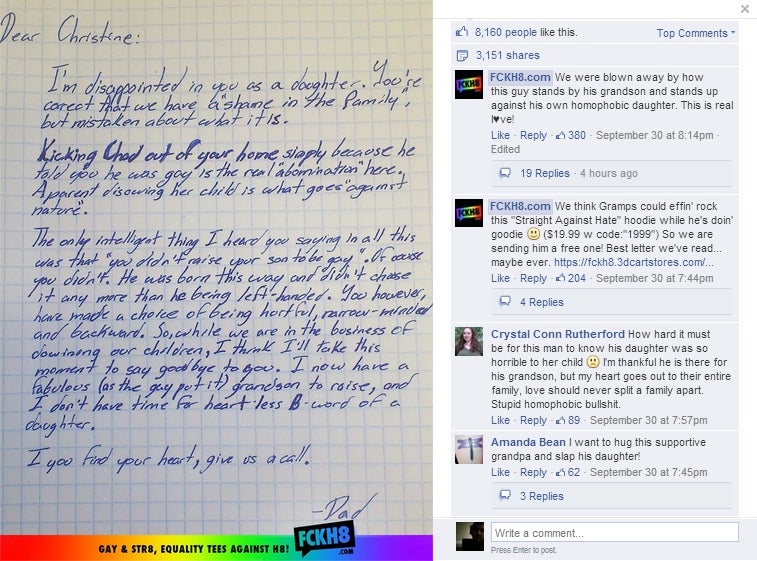 Dear Christine:
I'm disappointed in you as a daughter. You're
correct that we have a "shame in the family",
but mistaken about what it is.
Kicking Chad out of your home simply because he
told you he was gay is the real "abomination" here.
A parent disowing her child is what goes "against
nature".
The only intelligent thing I heard you saying in all this
was that "you didn't raise your son to be gay". Of couse
you didn't. He was born this way and didn't choose
it any more than he being left-handed. You however,
have made a choice of being hurtful, narrow-minded
and backward. So, while we are in the business of
disowning our children, I think I'll take this
moment to say goodbye to you. I now have a
fabulous (as the gay put it) grandson to raise, and
I don't have time for heart-less B-word of a
daughter.
I you find your heart, give us a call.
-Dad
GAY & STR8, EQUALITY TEES AGAINST H8! FCKH8
.COM
8,160 people like this. Top Comments
3,151 shares
FCKH8
FCKH8.com We were blown away by how
this guy stands by his grandson and stands up
against his own homophobic daughter. This is real
l♥ve!
Like · Reply · 380 · September 30 at 8:14pm ·
Edited
19 Replies · 4 hours ago
FCKH8
FCKH8.com We think Gramps could effin' rock
this "Straight Against Hate" hoodie while he's doin'
goodie ($19.99 w code:"1999") So we are
sending him a free one! Best letter we've read...
maybe ever. https://fckh8.3dcartstores.com/...
Like · Reply · 204 · September 30 at 7:44pm
4 Replies
Crystal Conn Rutherford How hard it must
be for this man to know his daughter was so
horrible to her child I'm thankful he is there for
his grandson, but my heart goes out to their entire
family, love should never split a family apart.
Stupid homophobic bullshit.
Like · Reply · 89 · September 30 at 7:57pm
Amanda Bean I want to hug this supportive
grandpa and slap his daughter!
Like · Reply · 62 · September 30 at 7:45pm
3 Replies
Write a comment...
Press Enter to post.